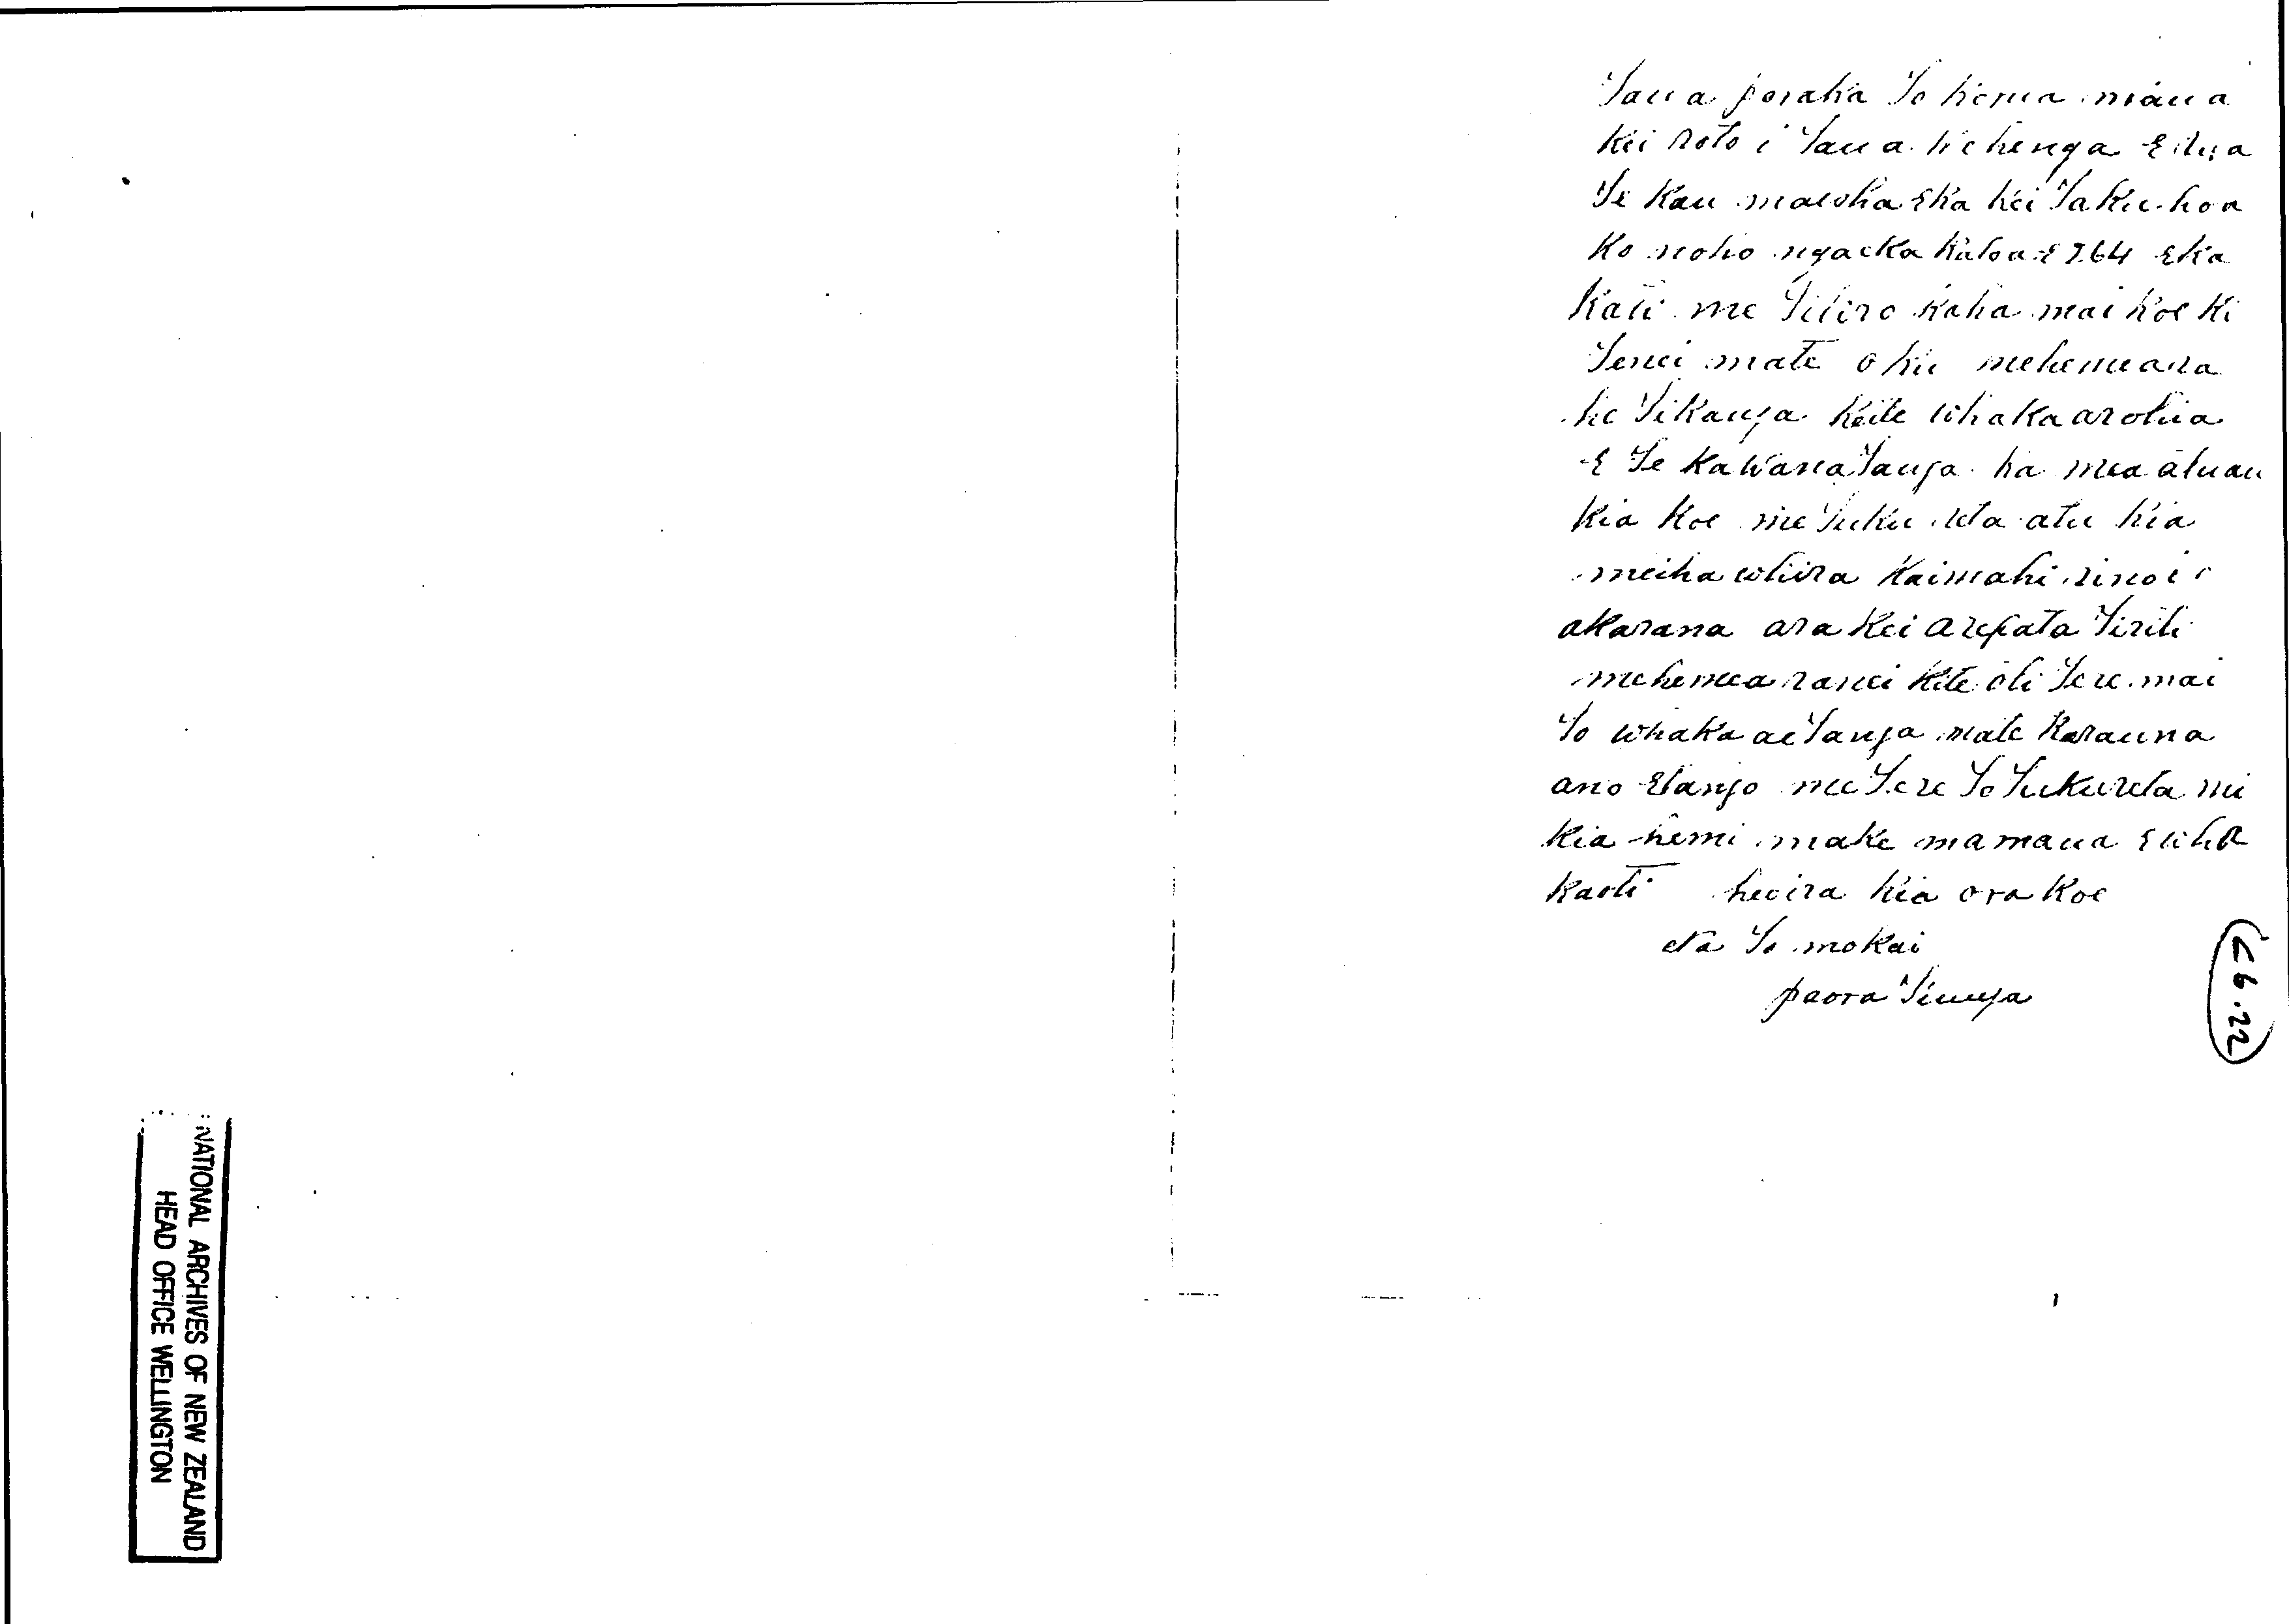 Taua poraka To hema māua
kei roto i Taua wehenga E rua
Te Kau mawha Eka kei Taku hoa
Ko noho nga eka katoa E 764 Eka
Kati me Titiro kaha mai koe ki
Tenei mate oku mehemeara
he Tikanga Keite whakaarohia
E Te KawanaTanga ka mea atu au
Kia Koe me Tuku reta atu kia
meiha whira Kaimahi rino i
akarana ara Kei arepata Tiriti
mehemea ranei Kite oti Tere mai
To whakaaeTanga mate Karauna
ano Etango me Tere To Tukureta mi
Kia hemi make mamaua E wha
Kaoti heoira Kia ora Koe
eta To mokai
paora Tinunga
C6.22
NATIONAL ARCHIVES OF NEW ZEALAND
HEAD OFFICE WELLINGTON